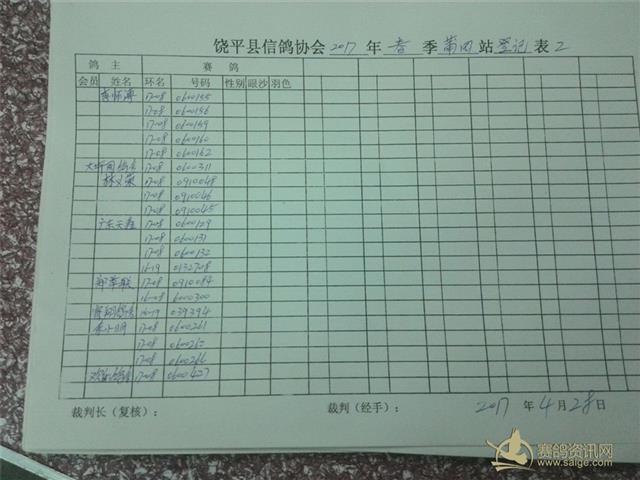 饶平县信鸽协会 2017 年 春 季 莆田 站 登记 表 2
鸽 主 赛 鸽
会员 姓名 环名 号码 性别 眼沙 羽色
17-08 0600155
17-08 0600156
17-08 0600159
17-08 0600160
17-08 0600162
17-08 0600311
17-08 0910048
17-08 0910046
17-08 0910045
17-08 0600129
17-08 0600131
17-08 0600132
16-19 0132708
17-08 0910084
16-08 6000300
16-19 039394
17-08 0600261
17-08 060026
17-08 0600266
17-08 0600427
裁判长（复核）： 裁判（经手）： 2017 年 4 月 28 日
赛鸽资讯网
www.saige.com